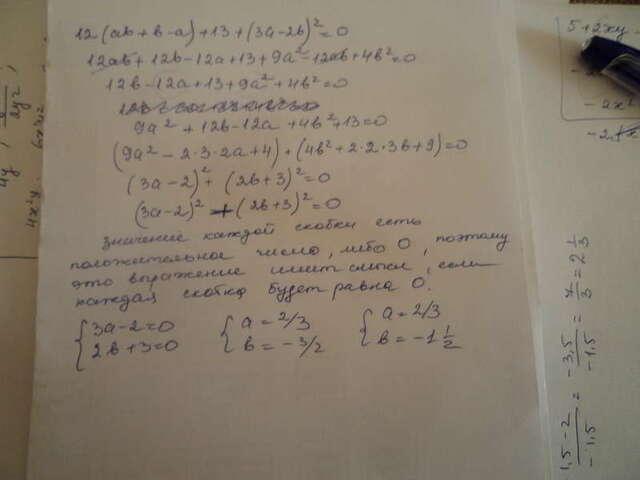 12(ab+b-a)+13+(3a-2b)²=0
12ab+12b-12a+13+9a²-12ab+4b²=0
12b-12a+13+9a²+4b²=0
9a²+12b-12a+4b²+13=0
(9a²-2·3·2a+4)+(4b²+2·2·3b+9)=0
(3a-2)²+(2b+3)²=0
(3a-2)²+(2b+3)²=0
значение каждой скобки есть
положительное число, либо 0, поэтому
это выражение имеит смысл, если
каждая скобка будет равна 0.
{3a-2=0 {a=2/3 {a=2/3
2b+3=0 b=-3/2 b=-1 1/2
5+2xy
1,5-2/-1,5 = -3,5/-1,5 = 7/3 = 2 1/3